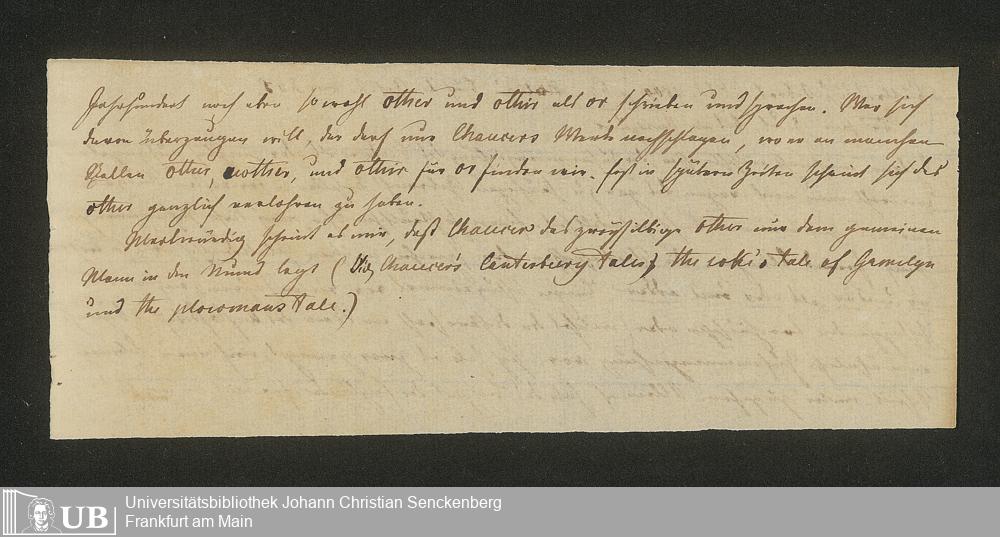 Jahrhundert noch eben sowohl other und othir als or schrieben und sprachen. Wer sich
davon überzeugen will, der darf nur Chaucers Werke nachschlagen, wo er an manchen
Stellen other, nother, und othir für or finden wir. Erst in spätern Zeiten scheint sich das
other gänzlich verlohren zu haben.
Merkwürdig scheint es mir, daß Chaucer das zweysilbige other nur dem gemeinen
Mann in den Mund legt (Vid. Chaucer's Canterbury tales; the coke's tale of Gamelyn
und the plowmans tale.)
UB
Universitätsbibliothek Johann Christian Senckenberg
Frankfurt am Main